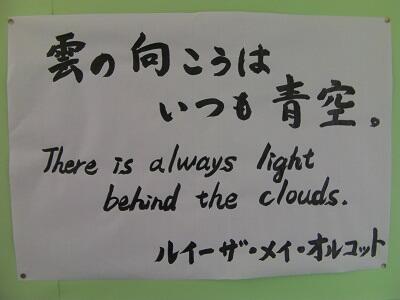 雲の向こうは
いつも青空。
There is always light
behind the clouds.
ルイーザ・メイ・オルコット